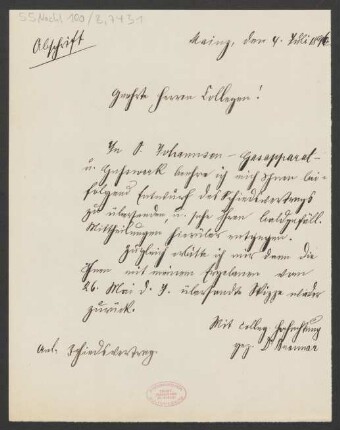 55 Nachl 100/B,7431
Abschrift
Mainz, den 4. Juli 1896
Geehrte Herren Collegen!
In S. Johannsen – Gasapparat-
u. Gußwerk beehre ich mich Ihnen bei-
folgend Entwurf des Schiedsvertrags
zu übersenden, u. sehe Ihren baldgefäll.
Mittheilungen hierüber entgegen.
Zugleich erbitte ich mir dann die
Ihnen mit meinem Ergebenen vom
26. Mai d. J. übersandte Skizze wieder
zurück.
Mit colleg. Hochachtung
gez. Dr
Anl. Schiedsvertrag.